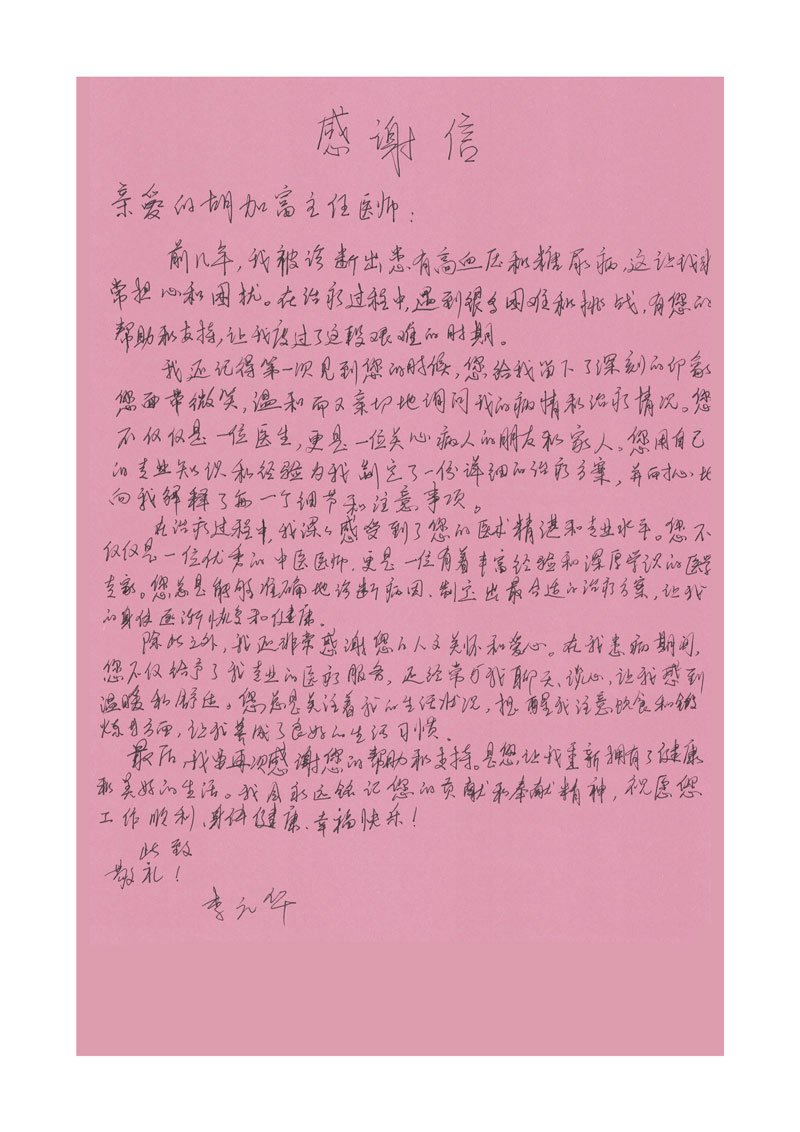 感谢信
亲爱的胡加富主任医师：
前几年，我被诊断出患有高血压和糖尿病，这让我非
常担心和困扰。在治疗过程中，遇到很多困难和挑战，有您的
帮助和支持，让我度过了这段艰难的时期。
我还记得第一次见到您的时候，您给我留下了深刻的印象
您面带微笑，温和而又亲切地询问我的病情和治疗情况。您
不仅仅是一位医生，更是一位关心病人的朋友和家人。您用自己
的专业知识和经验为我制定了一份详细的治疗方案，并耐心地
向我解释了每一个细节和注意事项。
在治疗过程中，我深深感受到了您的医术精湛和专业水平。您不
仅仅是一位优秀的中医医师，更是一位有着丰富经验和深厚学识的医学
专家。您总是能够准确地诊断病因、制定出最合适的治疗方案，让我
的身体逐渐恢复和健康。
除此之外，我还非常感谢您的人文关怀和爱心。在我患病期间，
您不仅给予了我专业的医疗服务，还经常与我聊天、谈心，让我感到
温暖和舒适。您总是关注着我的生活状况，提醒我注意饮食和锻
炼身方面，让我养成了良好的生活习惯。
最后，我要再次感谢您的帮助和支持。是您，让我重新拥有了健康
和美好的生活。我会永远铭记您的贡献和奉献精神，祝愿您
工作顺利、身体健康、幸福快乐！
此致
敬礼！
李元华